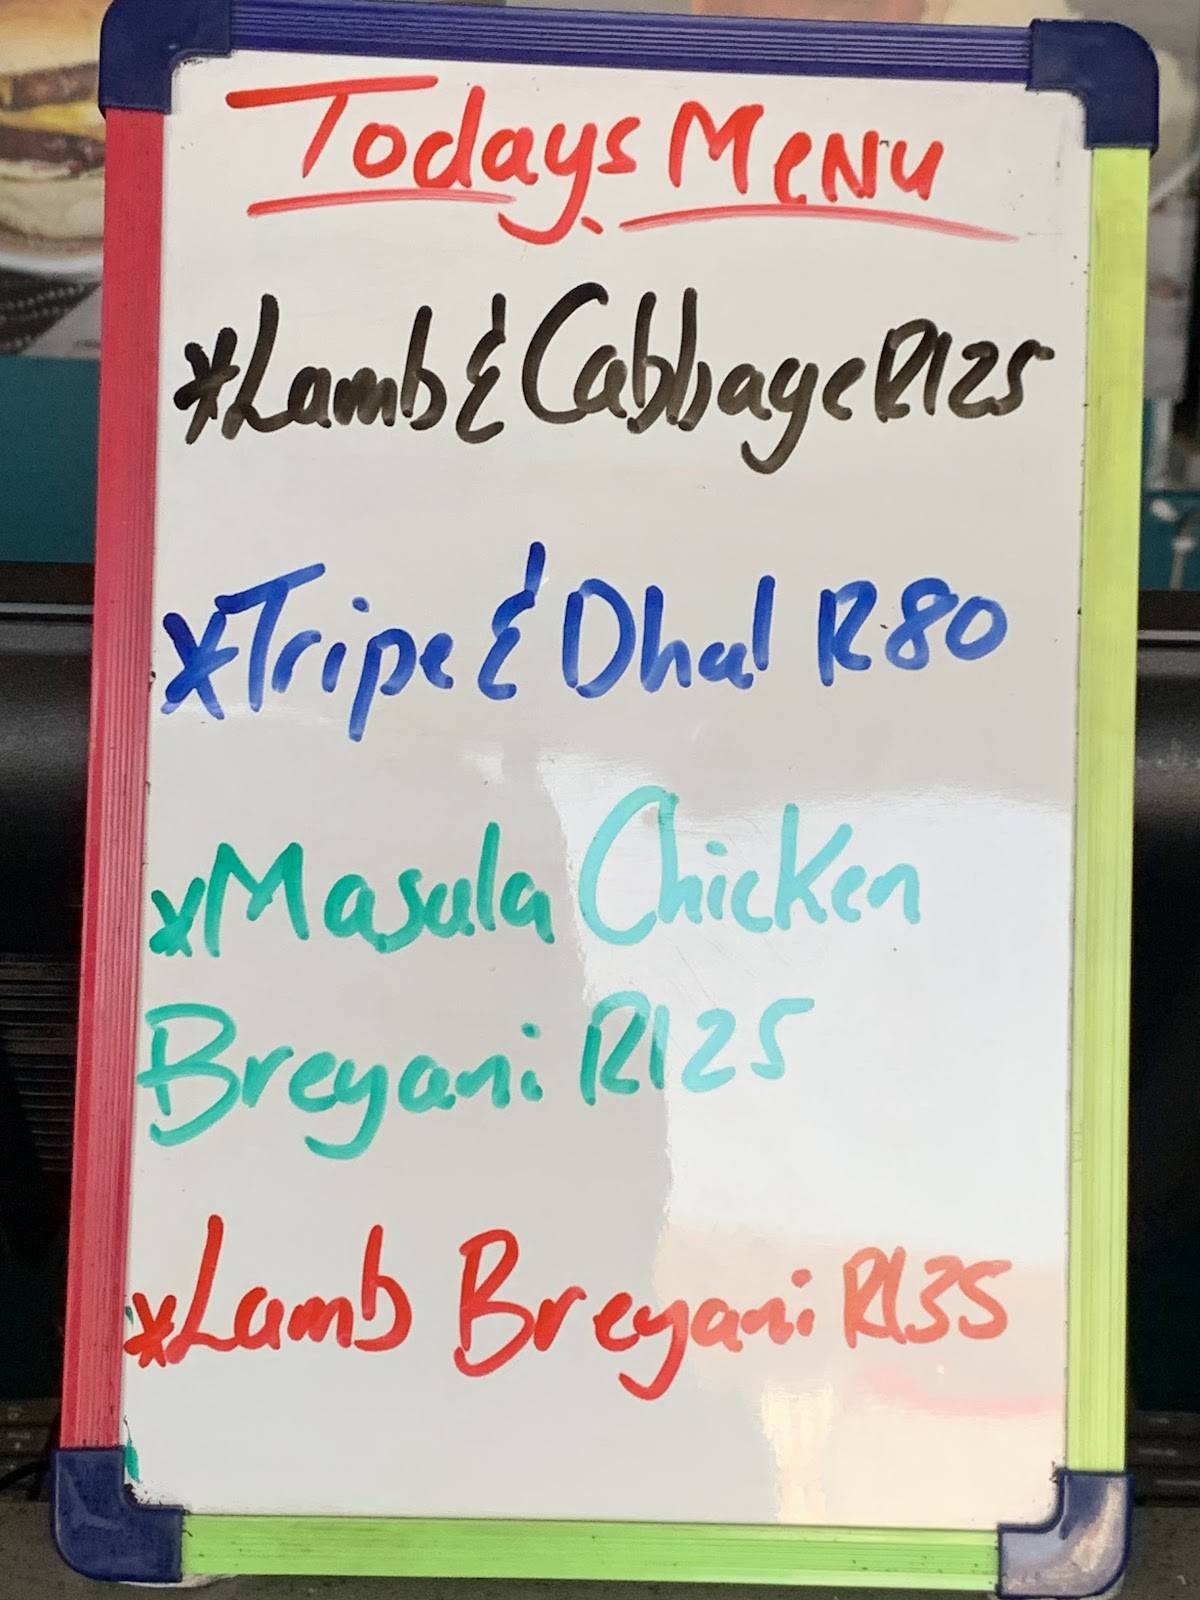 Todays Menu
*Lamb & Cabbage R125
*Tripe & Dhal R80
*Masala Chicken
Breyani R125
*Lamb Breyani R135